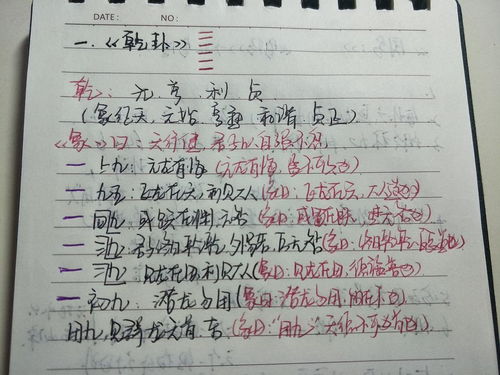 DATE: NO:
一.《乾卦》
乾: 元 亨 利 贞
(象征天, 元始 亨通 和谐 贞正)
《象》曰: 天行健, 君子以自强不息
上九: 亢龙有悔 (亢龙有悔, 盈不可久也)
九五: 飞龙在天, 利见大人 (象曰: 飞龙在天, 大人造也)
四九 或跃在渊, 无咎 (象曰: 或跃在渊, 进无咎也)
三九: 君子终日乾乾, 夕惕若, 厉无咎 (象曰: 终日乾乾, 反复道也)
二九: 见龙在田, 利见大人 (象曰: 见龙在田, 德施普也)
初九: 潜龙勿用 (象曰: 潜龙勿用, 阳在下也)
用九, 见群龙无首, 吉 (象曰: "用九", 天德不可为首也)